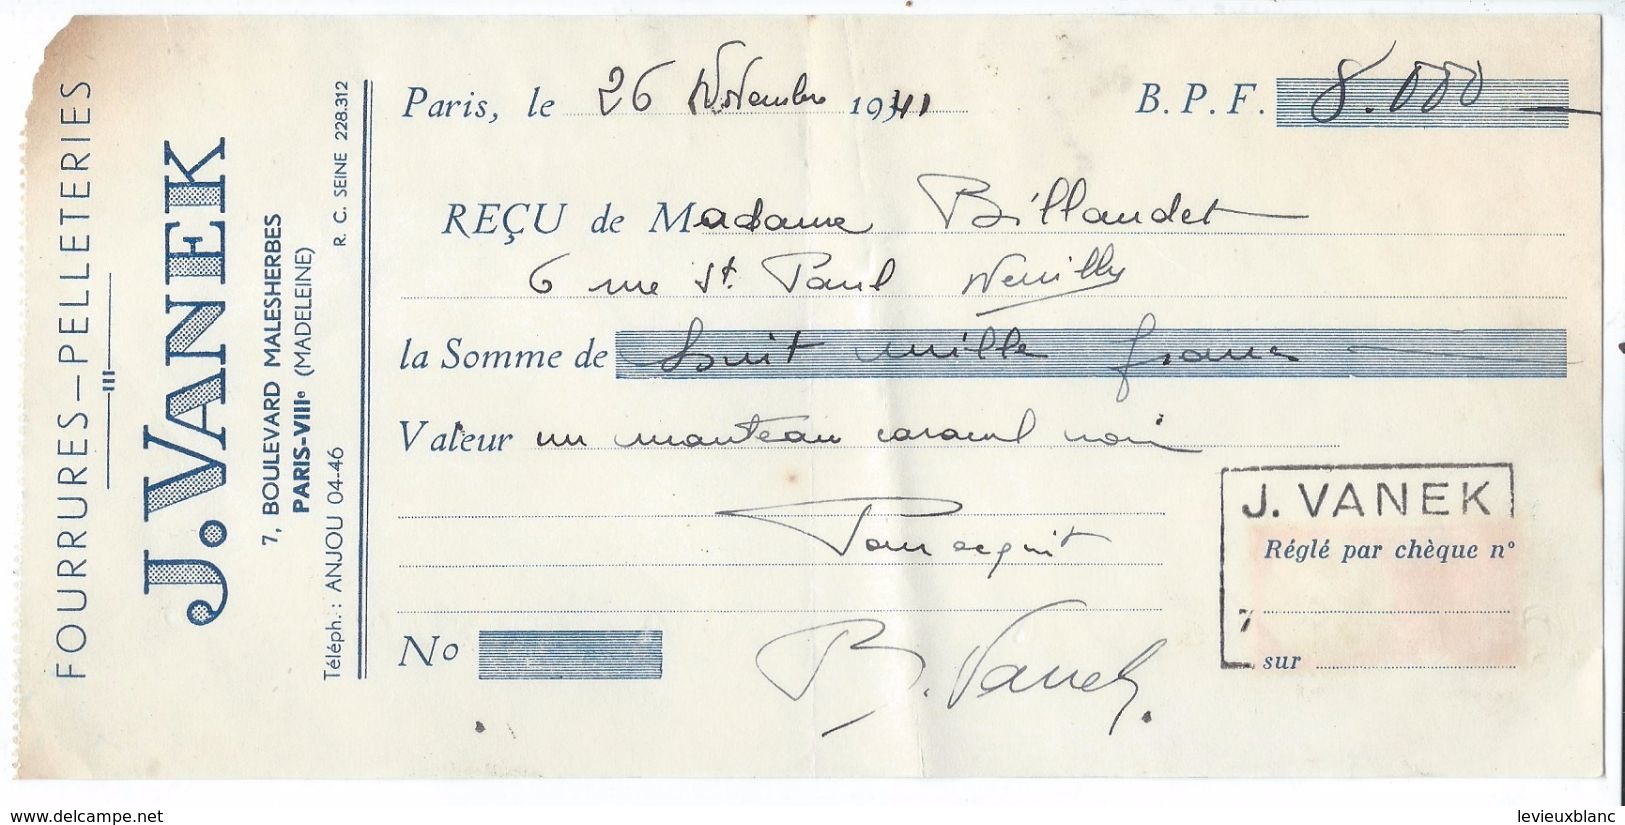 FOURRURES—PELLETERIES
J. VANEK
7, BOULEVARD MALESHERBES
PARIS-VIIIe (MADELEINE)
Téléph.: ANJOU 04-46
R. C. SEINE 228.312
Paris, le 26 Novembre 1941
B. P. F. 8.000
REÇU de Madame Billaudet
6 rue St. Paul Neuilly
la Somme de huit mille francs
Valeur un manteau caracul noir
Pour acquit
J. VANEK
Réglé par chèque n°
7
sur
No
B. Vanek.
www.delcampe.net
levieuxblanc